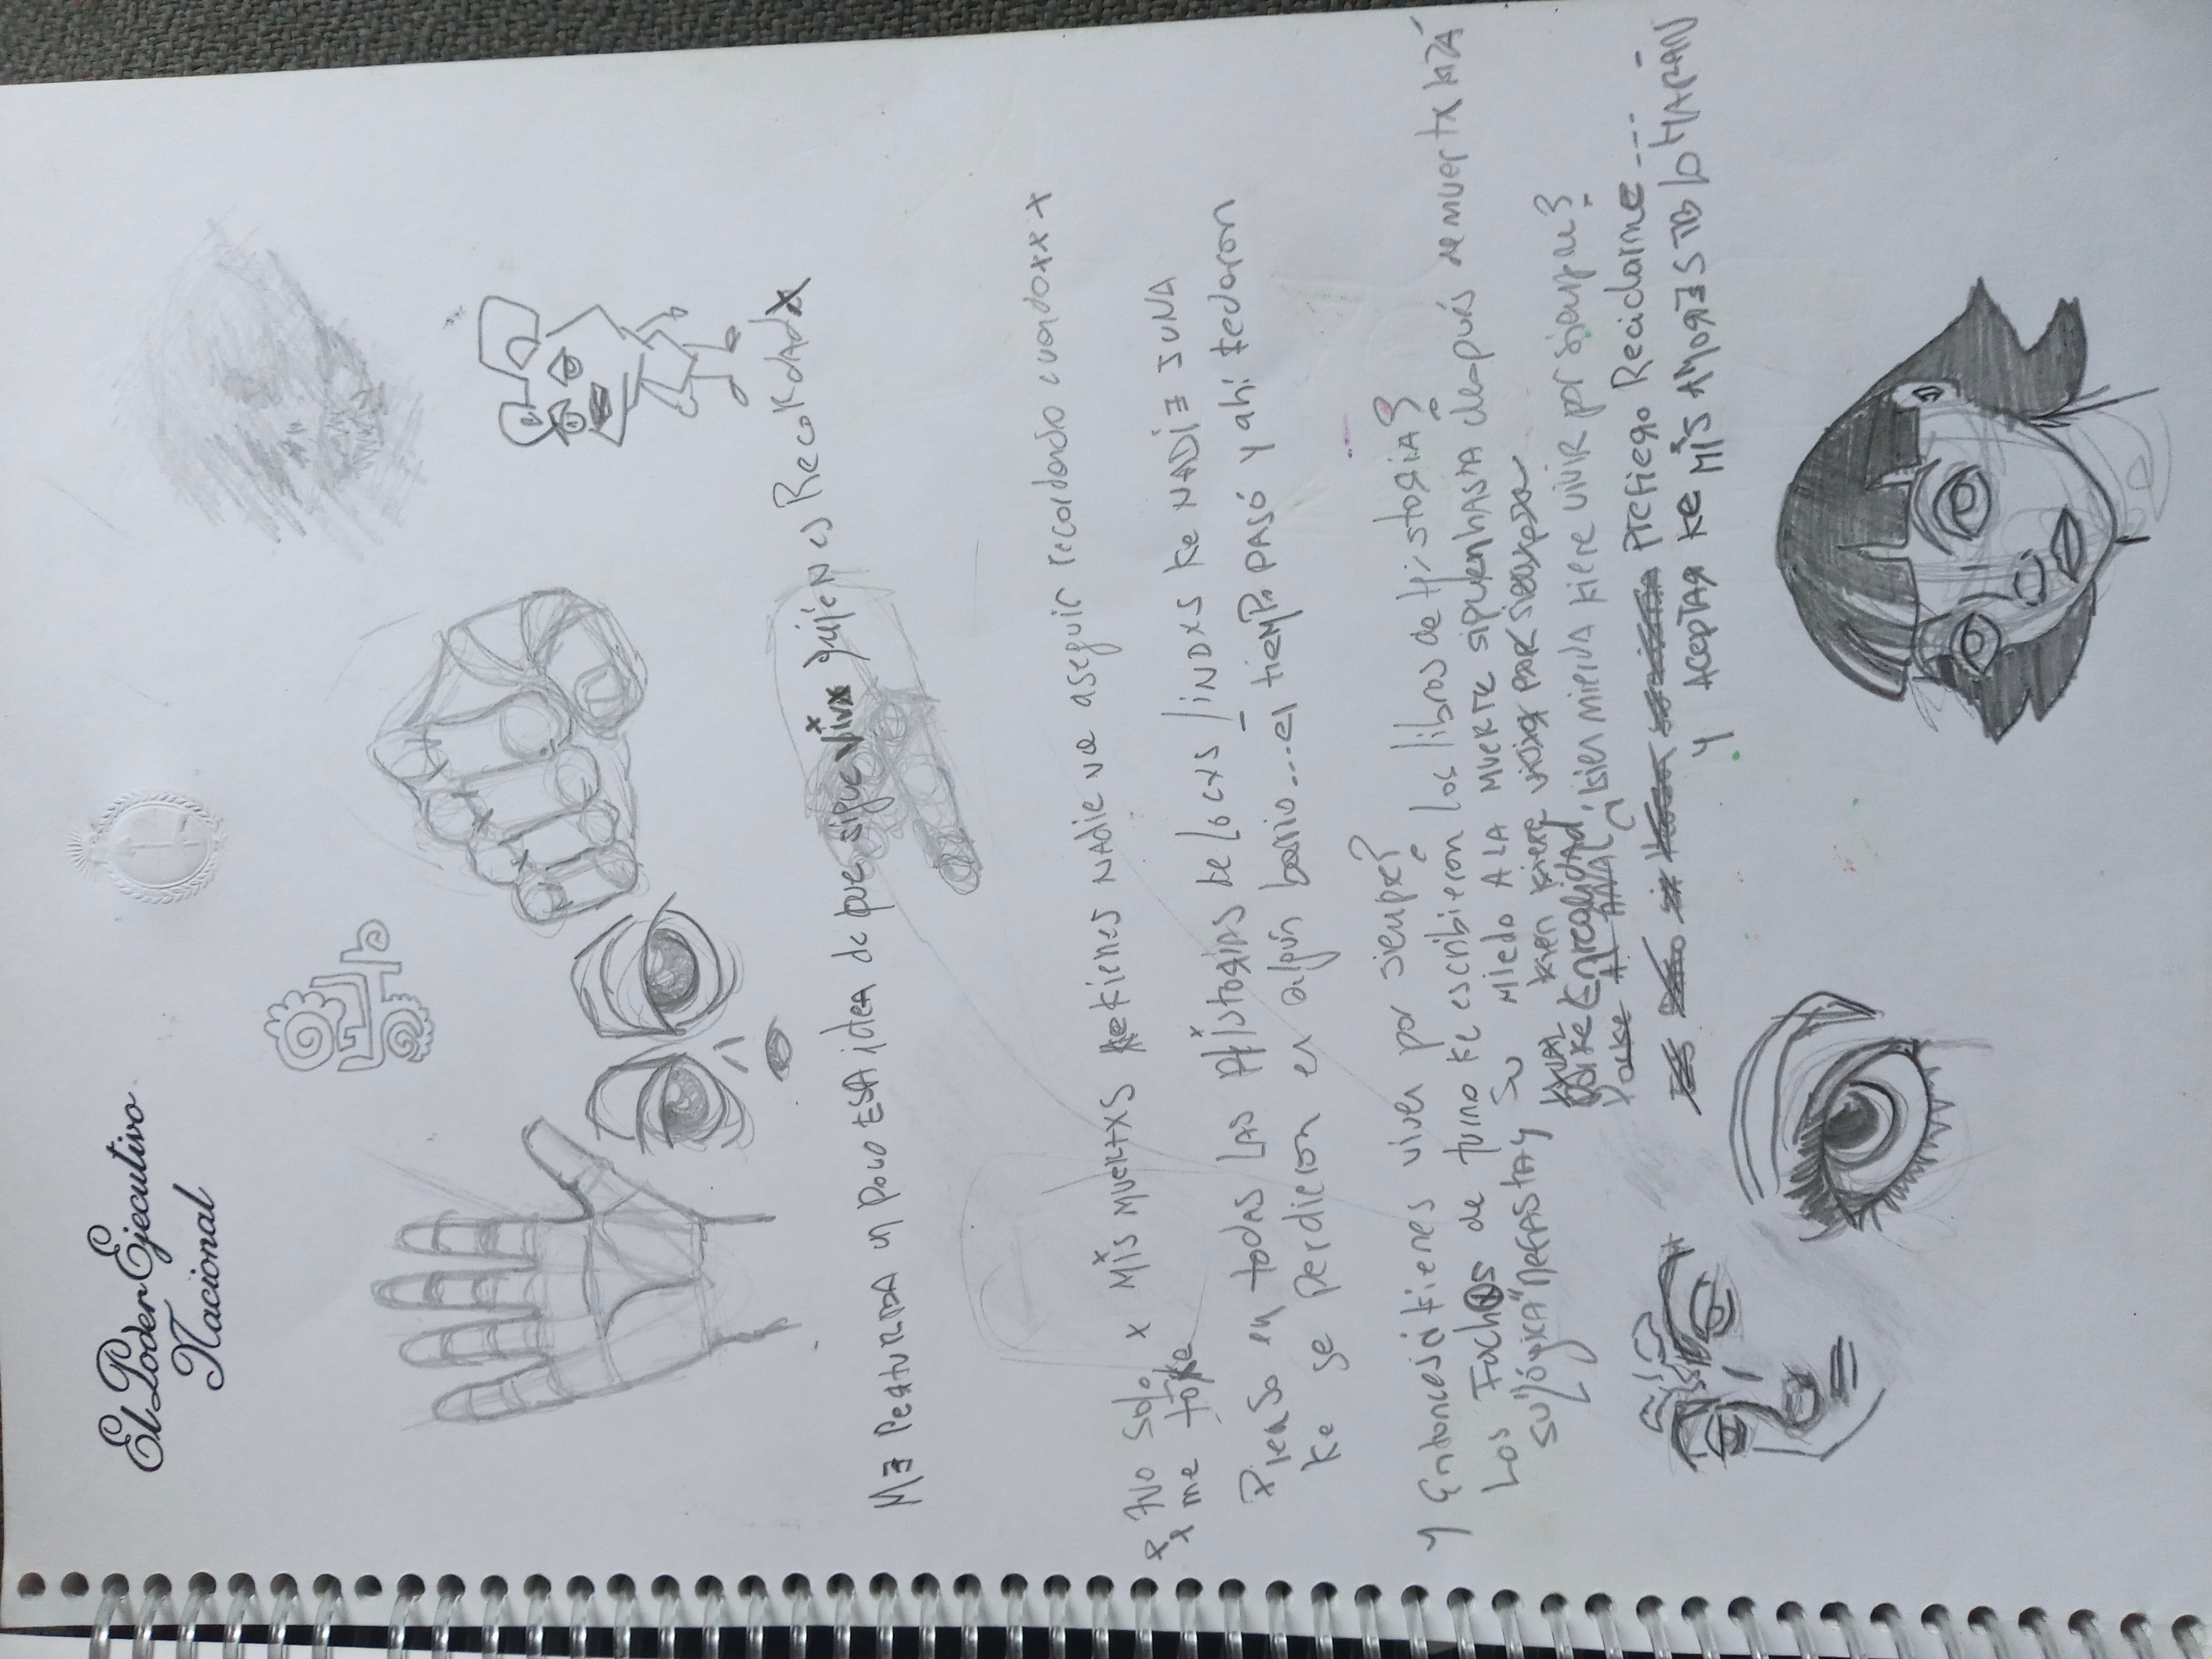 El Poder Ejecutivo
Nacional
ME PERTURBA un poco ESA idea de que sigue vivx quién es RecoRdAdx
No solo x Mis MUERtxS kienes NAdie va a seguir recordando cuando xx x
x me toke
Pienso en todAS LAS HistoRiAS de locxs / iNDXS ke NADIE SUMA
ke se perdieron en algún barrio... el tiempo PASÓ y ahí kedaron
Y Entonces kienes viven por siempre?
Los Fachos de turno ke escribieron los libros de HistoRiA?
su "lógika" NEFASTA y su MiEdo A LA MUERTE siguen hASTA después de MUERtx kizÁ
kien kiere vivir por siempre
EN REALIDAD, kien MIERDA kiere vivir por siempre?
PREfieRo Reciclarme ....
Y ACEPTAR KE MiS AMORES TB lo HARÁN